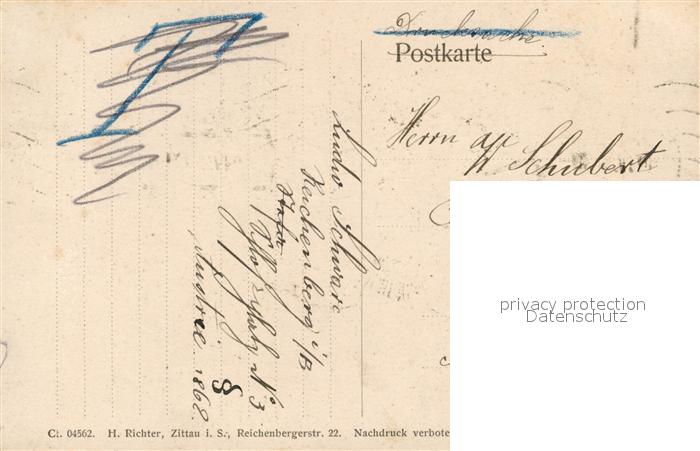 Drucksache
Postkarte
Herrn
W. Schubert
Ludw Schwarz
Reichenberg i/B
N° 3
Austrie 1868
8
privacy protection
Datenschutz
Ct. 04562. H. Richter, Zittau i. S., Reichenbergerstr. 22. Nachdruck verbote